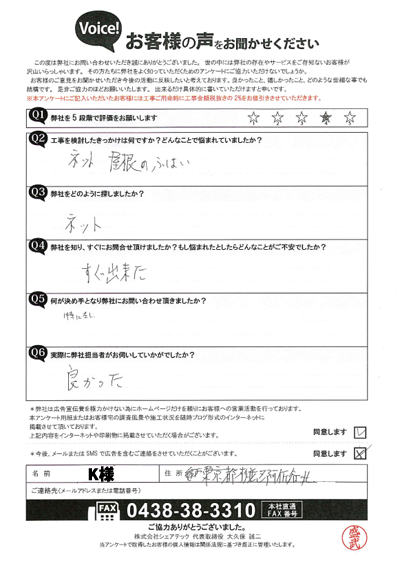 Voice!
お客様の声をお聞かせください
この度は弊社にお問い合わせいただき誠にありがとうございました。世の中には弊社の存在やサービスをご存知ないお客様が
沢山いらっしゃいます。その方たちに弊社をよく知っていただくためのアンケートにご協力いただけないでしょうか。
お客様のご意見をお聞かせいただき今後の活動に反映したいと考えております。良かったこと、嬉しかったこと、どのような些細な事でも
結構です。是非ご協力のほどお願いいたします。出来るだけ具体的に書いていただけますと幸いです。
※本アンケートにご記入いただいたお客様には工事ご用命時に工事金額税抜きの2%をお値引きさせていただきます。
Q1 弊社を5段階で評価をお願いします ☆ ☆ ☆ ★ ☆
Q2 工事を検討したきっかけは何ですか?どんなことで悩まれていましたか?
ネット 屋根のふはい
Q3 弊社をどのように探しましたか?
ネット
Q4 弊社を知り、すぐにお問合せ頂けましたか?もし悩まれたとしたらどんなことがご不安でしたか?
すぐ出来た
Q5 何が決め手となり弊社にお問い合わせ頂きましたか?
特になし
Q6 実際に弊社担当者がお伺いしていかがでしたか?
良かった
*弊社は広告宣伝費を極力かけない為にホームページだけを頼りにお客様への営業活動を行っております。
本アンケート用紙またはお客様宅の調査風景や施工状況を随時ブログ形式のインターネットに
掲載させて頂いております。
上記内容をインターネットや印刷物に掲載させていただく場合がございます。
同意します
*今後、メールまたはSMSで広告を含むご連絡をさせていただくことがございます。
同意します
名前 K様 住所 東京都杉並区阿佐谷北
ご連絡先(メールアドレスまたは電話番号)
FAX 0438-38-3310 本社直通 FAX番号
ご協力ありがとうございました。
株式会社シェアテック 代表取締役 大久保 誠二
当アンケートで取得したお客様の個人情報は関係法規に基づき厳正に管理いたします。
盛武